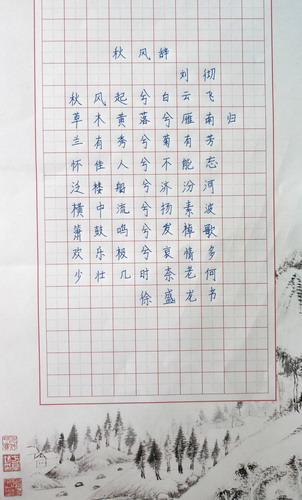 秋风辞
刘彻
秋风起兮白云飞
草木黄落兮雁南归
兰有秀兮菊有芳
怀佳人兮不能忘
泛楼船兮济汾河
横中流兮扬素波
箫鼓鸣兮发棹歌
欢乐极兮哀情多
少壮几时奈老何
徐盛龙书